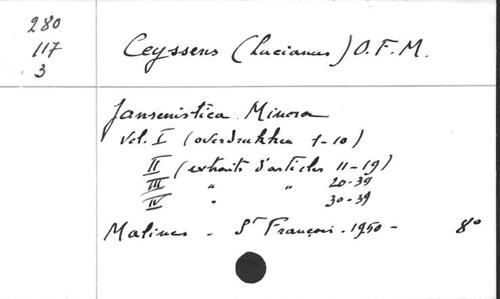 280
117
3
Ceyssens (Lucianus) O.F.M.
Jansenistica Minora
Vol. I (overdrukken 1-10)
II (extraits d'articles 11-19)
III " " 20-39
IV " 30-39
Malines - St François - 1950 - 8°